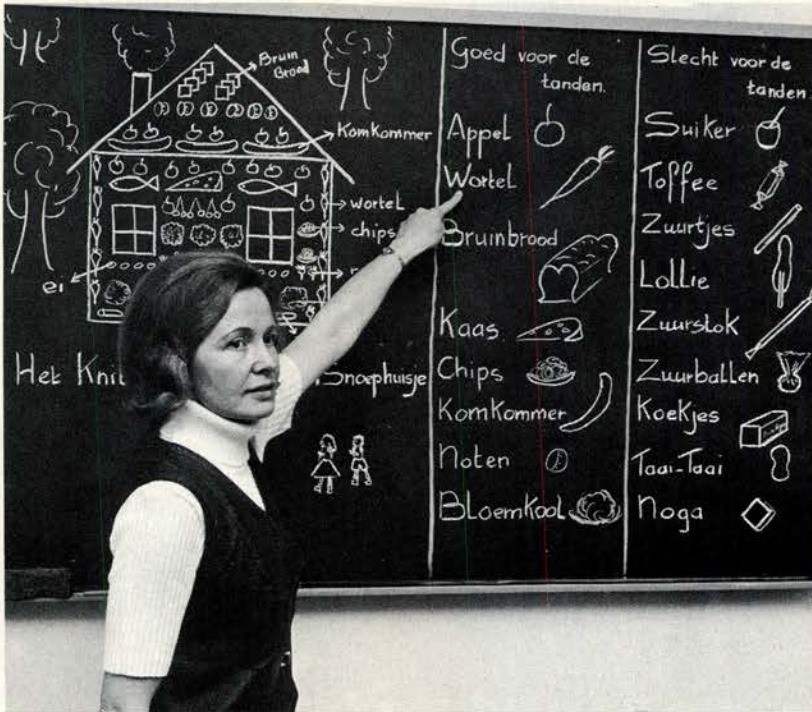 Bruin
Brood
Komkommer
wortel
chips
ei
Het Knit
Snoephuisje
Goed voor de
tanden.
Appel
Wortel
Bruinbrood
Kaas
Chips
Komkommer
Noten
Bloemkool
Slecht voor de
tanden.
Suiker
Toffee
Zuurtjes
Lollie
Zuurstok
Zuurballen
Koekjes
Taai-Taai
Noga